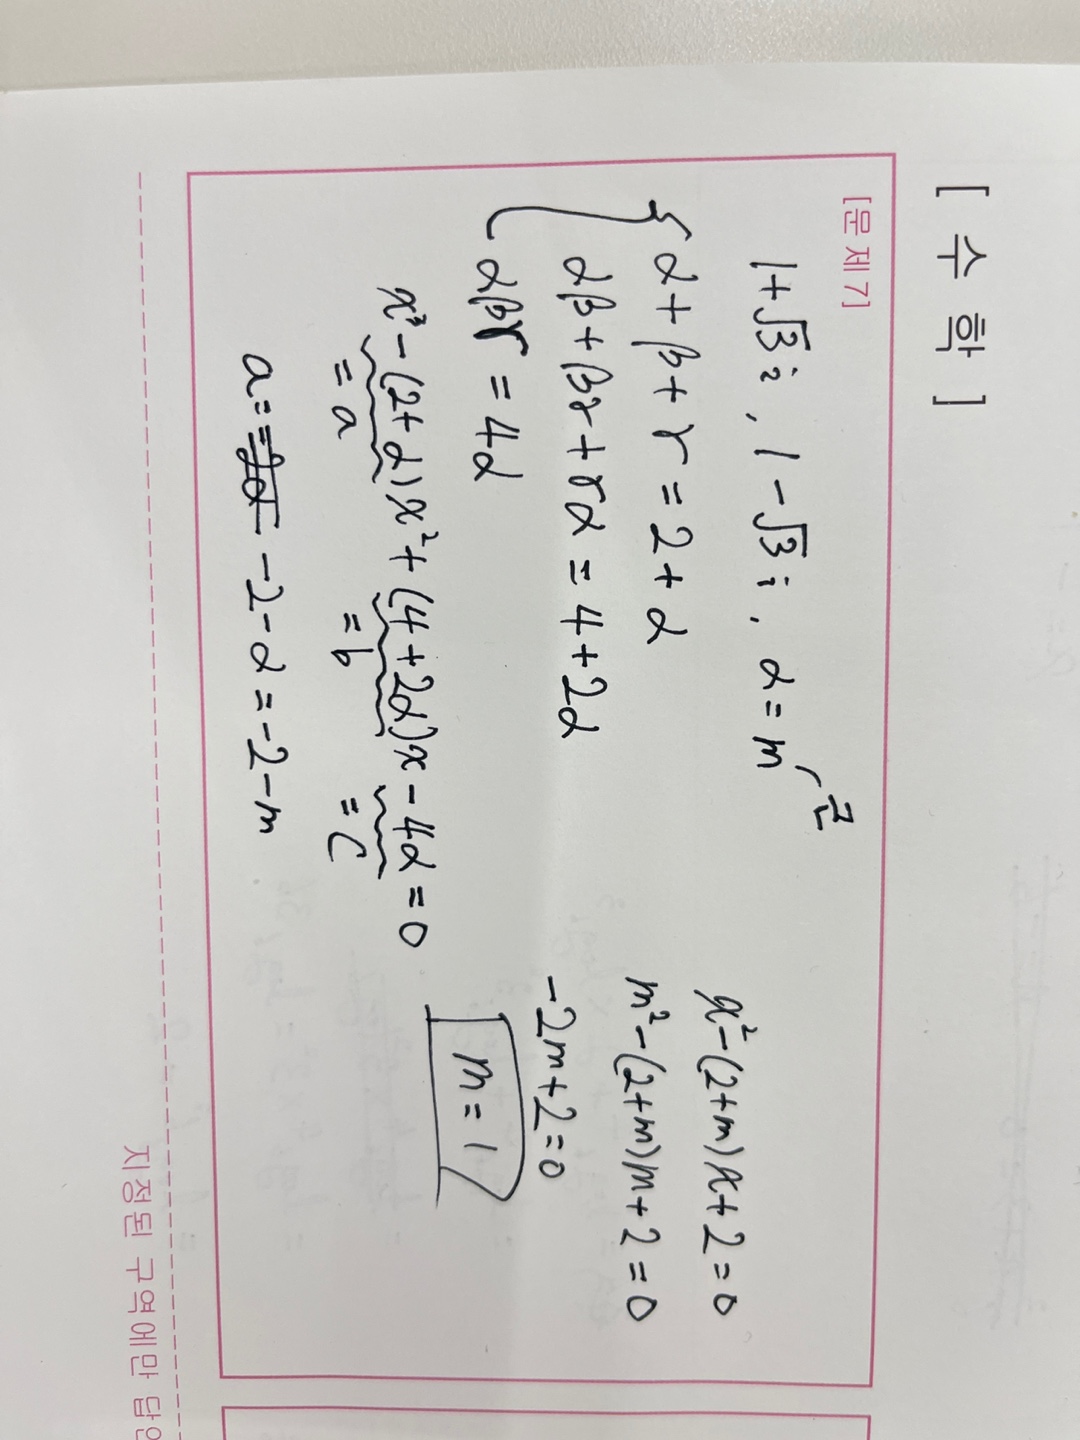 [ 수 학 ]
[문제7]
1+√3 i , 1-√3 i , α=m 근
α+β+γ=2+α
αβ+βγ+γα=4+2α
αβγ=4α
x³-(2+α)x²+(4+2α)x-4α=0
=a =b =c
a= -2-α=-2-m
x²-(2+m)x+2=0
m²-(2+m)m+2=0
-2m+2=0
m=1
지정된 구역에만